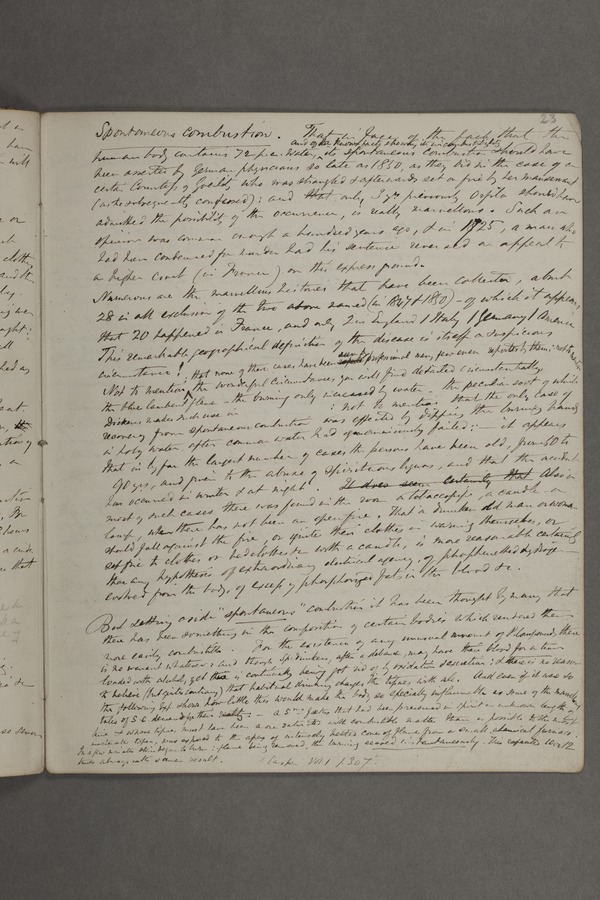 23
Spontaneous combustion. That in face of the fact, that the
human body contains 72 p.c. water, and other known facts showing its incombustibility its spontaneous combustion should have
been asserted by German physicians so late as 1850, as they did in the case of a
certn Countess of Goerlitz who was strangled & afterwards set on fire by her manservant
(as he subsequently confessed): and that only 3 yrs previously Orfila should have
admitted the possibility of the occurrence, is really marvellous. Such an
opinion was common enough a hundred years ago, & in 1725, a man who
had been condemned for murder had his sentence reversed on appeal to
a higher Court (in France) on this express ground.
Numerous are the marvellous histories that have been collected, about
28 in all exclusive of the two above named (in 1847 & 1850) - of which it appears
that 20 happened in France, and only 2 in England 1 Italy 1 Germany 1 America
This remarkable geographical definition of the disease is itself a suspicious
circumstance! that none of these cases have been seen by professional men, nor even reported by them: not to
Not to mention the wonderful circumstances you will find detailed circumstantially.
the blue lambent flame - the burning only increased by water - the peculiar soot of which
Dickens makes such use in : not to mention that the only case of
recovery from spontaneous combustion was effected by dipping the burning hand
in holy water after common water had ignominiously failed: - it appears
that in by far the largest number of cases the persons have been old, from 50 to
90 yrs, and given to the abuse of spirituous liquors, and that the accident
has occurred in winter & at night. It does seem certainly that Also in
most of such cases there was found in the room a tobacco pipe, a candle or
lamp, when there has not been an open fire. That a drunken old man or woman
should fall against the fire, or ignite their clothes in warming themselves, or
set fire to clothes or bedclothes &c with a candle, is more reasonable certainly
than any hypothesis of extraordinary electrical agency, of phosphuretted hydrogen
evolved from the body, of excess of phosphorized fats in the blood &c.
But setting aside "spontaneous" combustion it has been thought by many that
there has been something in the composition of certain bodies which rendered them
more easily combustible. For the existence of any unusual amount of P. compounds, there
is no warrant whatever; and though sp. drinkers, after a debauch, may have their blood for a time
loaded with alcohol, yet this is continually being got rid of by oxidation & excretion: & there is no reason
to believe (but quite contrary) that habitual drinking charges the tissues with alc. And even if it was so
the following expt shows how little this would make the body so specially inflammable as some of the marvellous
tales of S C demand for their reality: - a 5mo foetus that had been preserved in spirit an unknown length of
time & whose tissues must have been more saturated with combustible matter than is possible to the most
inebriate tissue, was exposed to the apex of intensely heated cone of flame from a small chemical furnace.
In a few minutes skin began to burn: flame being removed, the burning ceased instantaneously. This repeated 10 or 12
times always with same result. Casper Vol 1 p 307